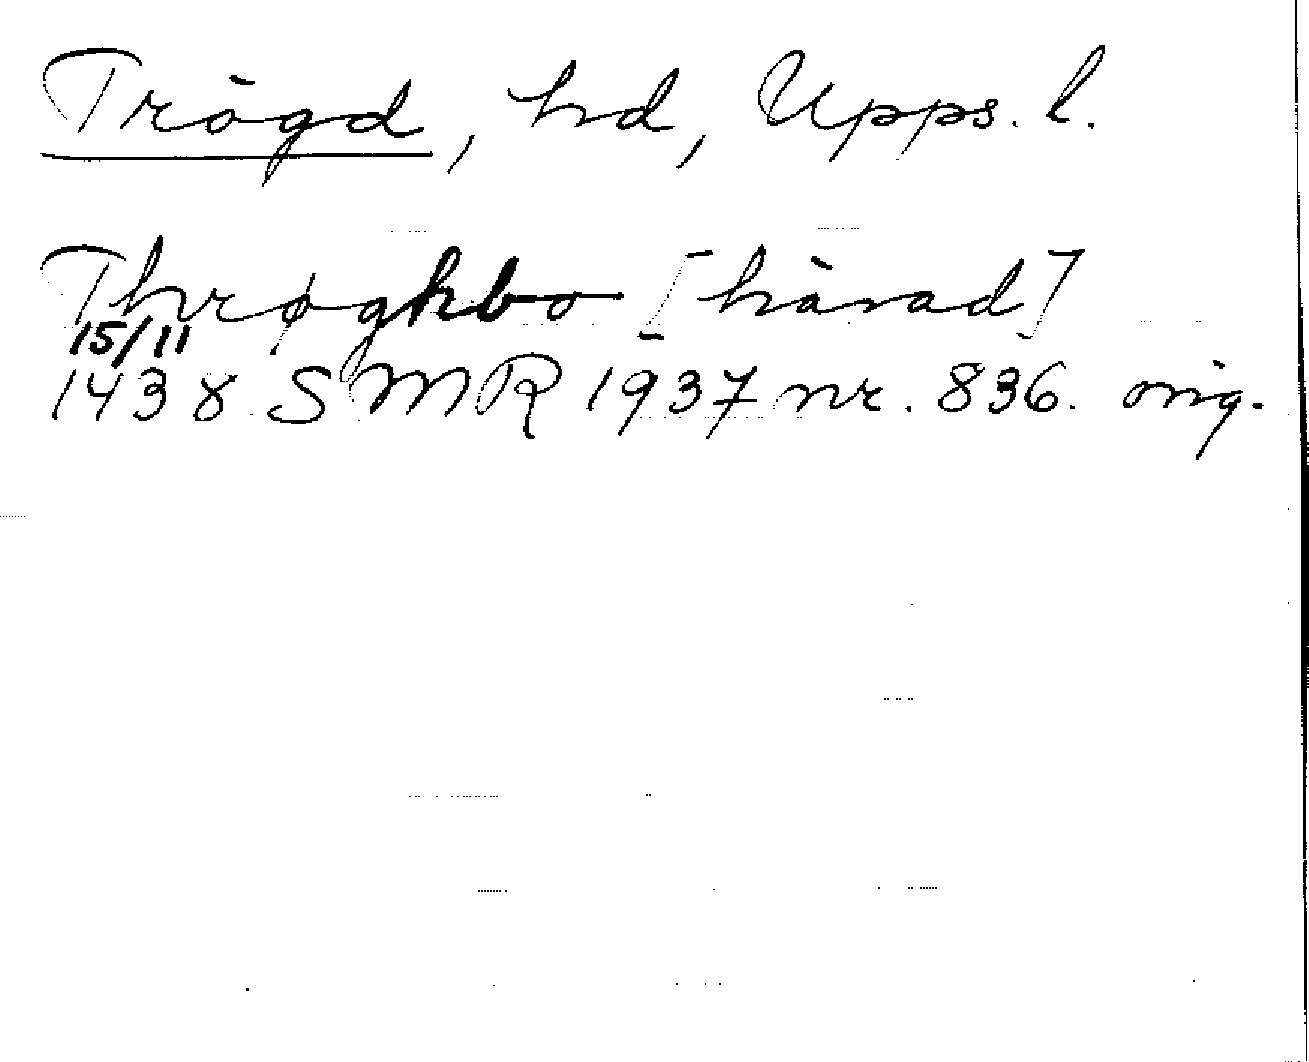 Trögd, hd, Upps. l.
Thrøghbo [härad]
15/11
1438 SMR 1937 nr. 836. orig.